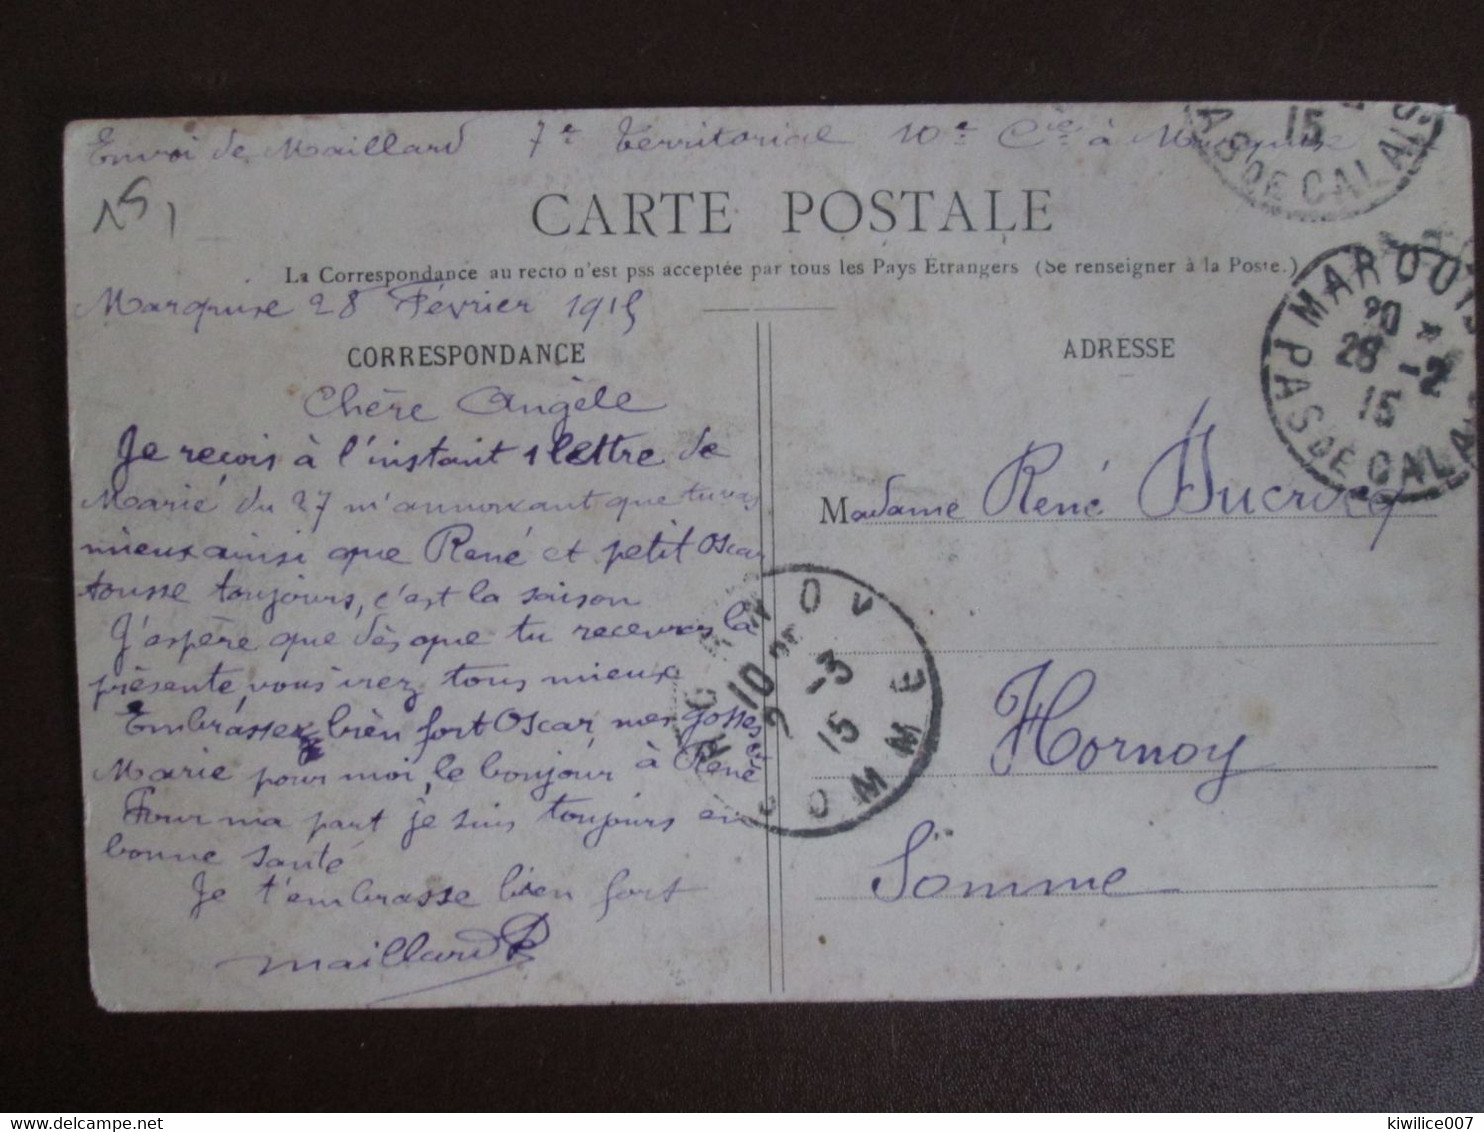 Envoi de Maillard 7e Territorial 10e Cie à Marquise
15
PAS DE CALAIS
151
CARTE POSTALE
La Correspondance au recto n'est pss acceptée par tous les Pays Etrangers (Se renseigner à la Poste.)
Marquise 28 Février 1915
CORRESPONDANCE
ADRESSE
MARQUISE
28 -2
15
PAS DE CALAIS
Chère Angèle
Je reçois à l'instant 1 lettre de
Marie du 27 m'annonxant que tu vas
mieux ainsi que René et petit Oscar
tousse toujours, c'est la saison
J'espère que dès que tu recevras la
présente vous irez tous mieux
Embrasse bien fort Oscar mes gosses et
Marie pour moi, le bonjour à René
Pour ma part je suis toujours en
bonne santé
Je t'embrasse bien fort
Maillard
Madame René Ducrocq
Hornoy
Somme
HORNOY
10
2 -3
15
SOMME
kiwilice007